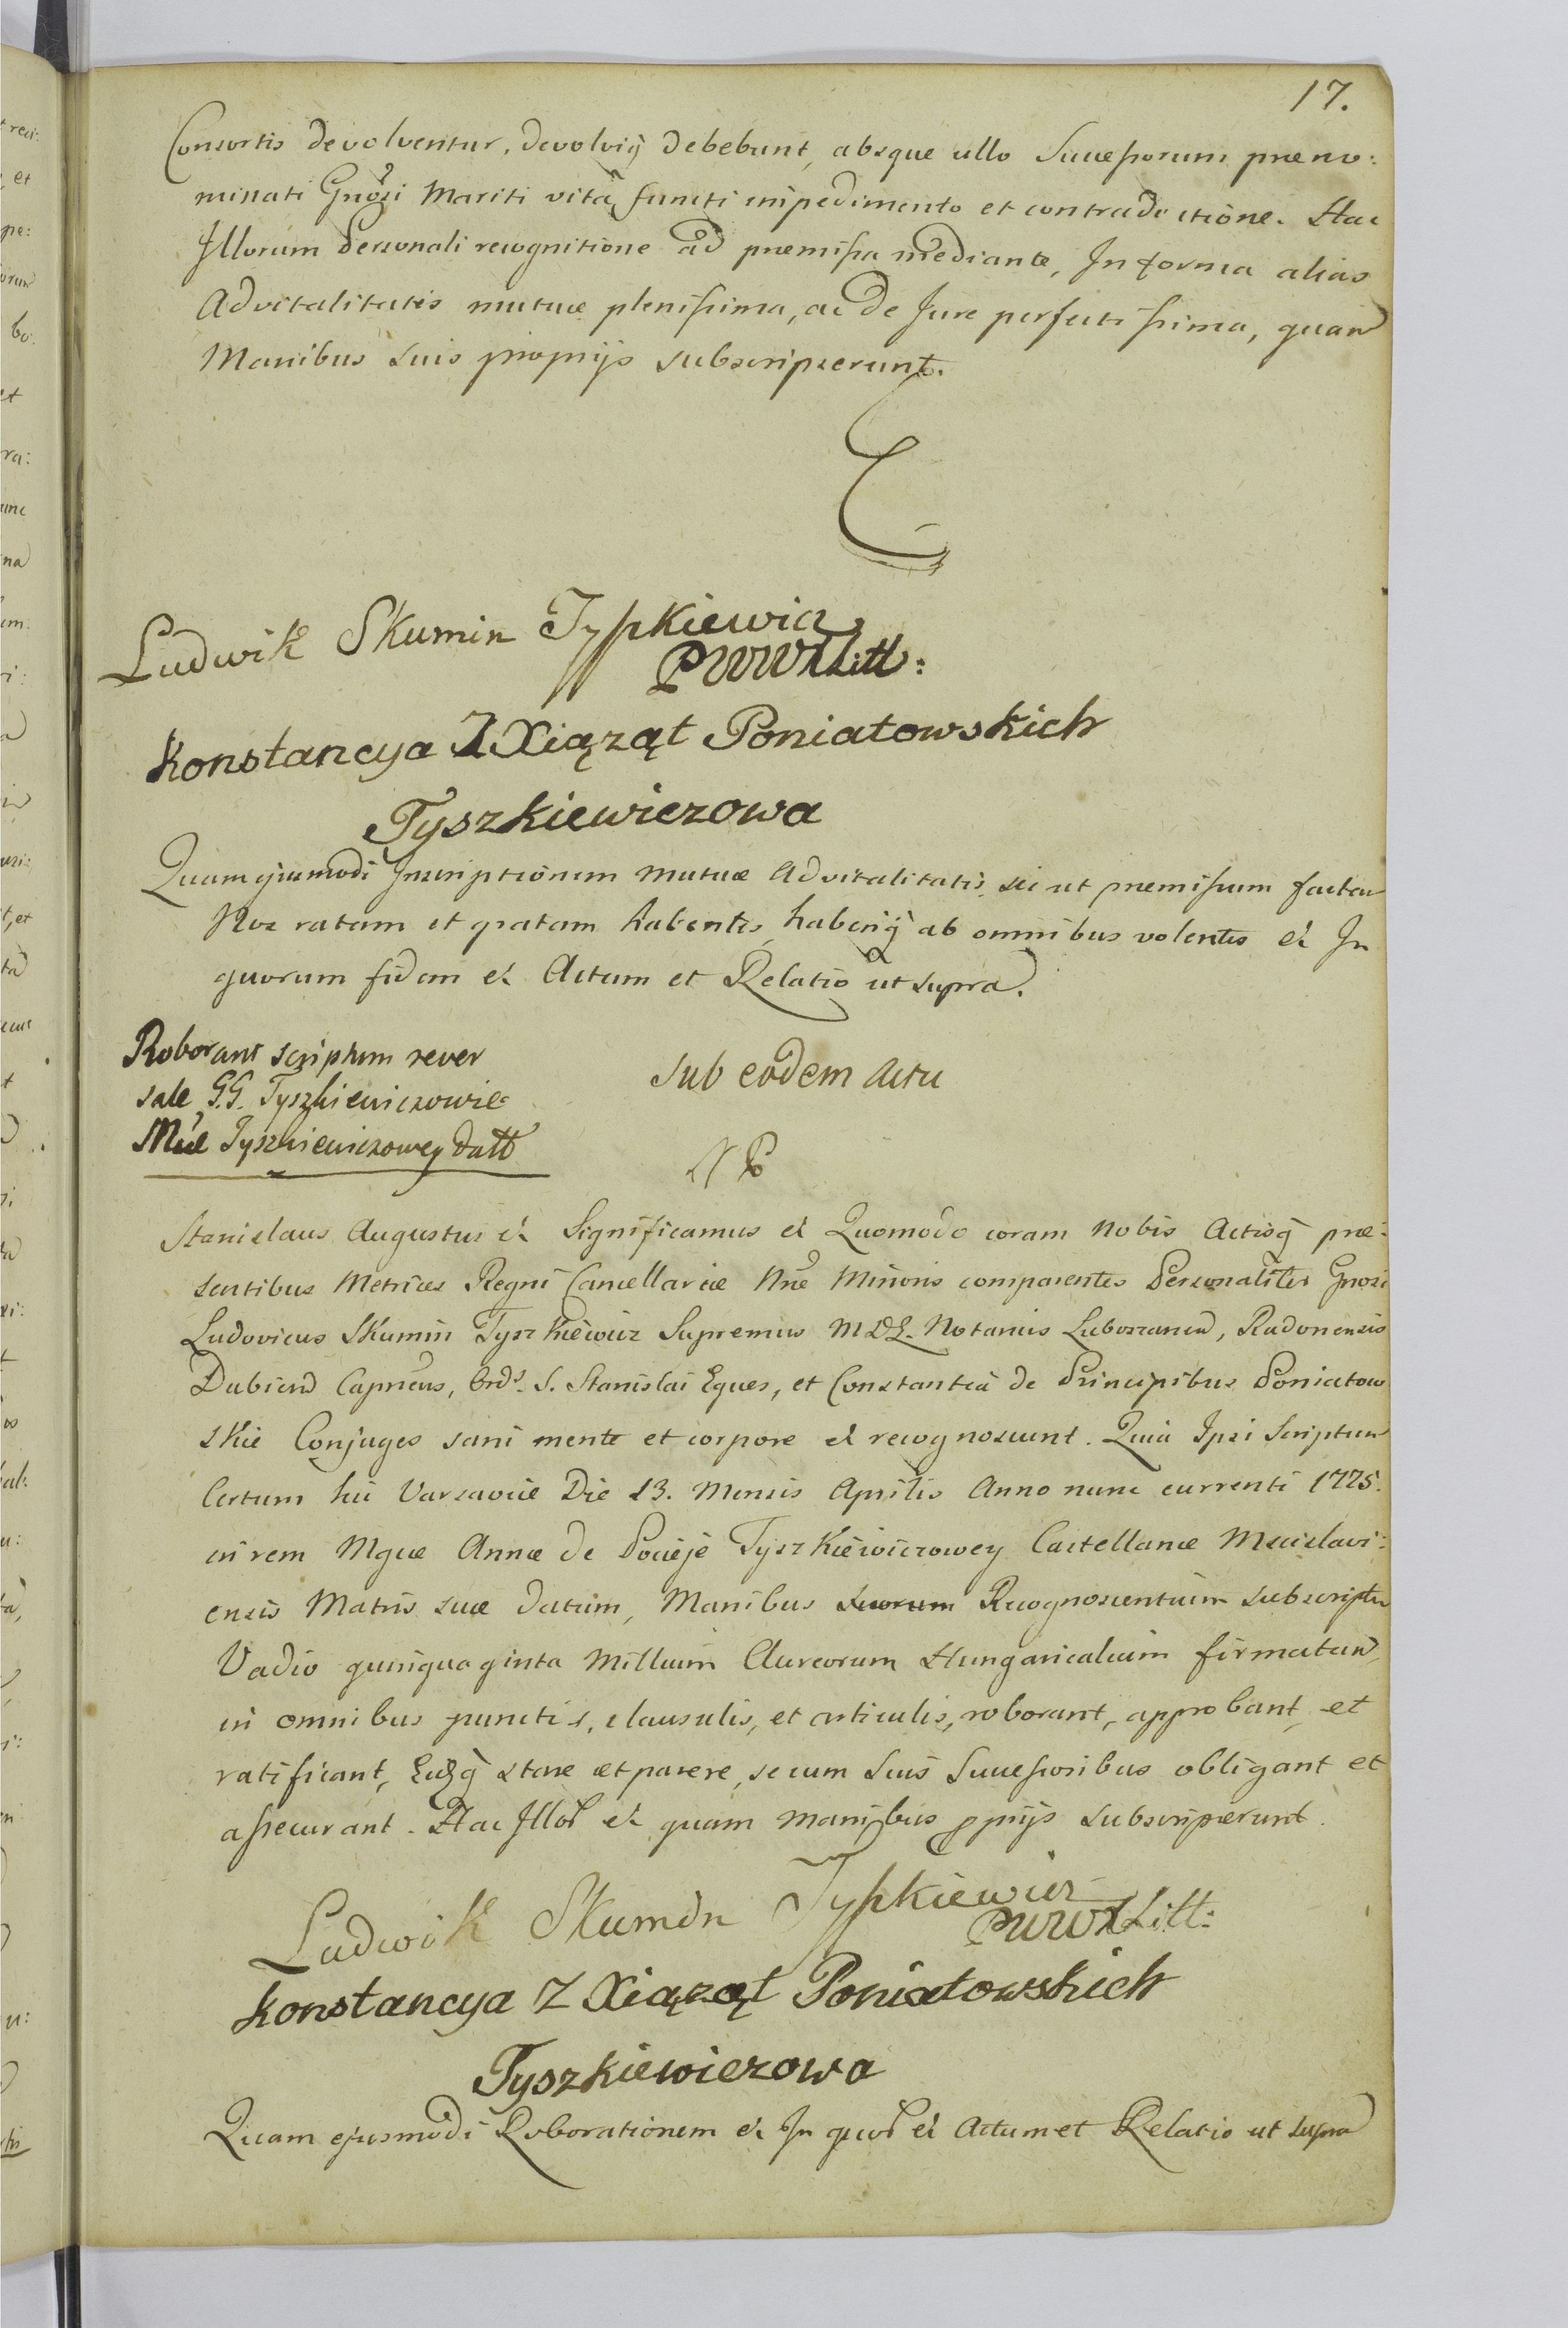 17.
Consortis devolventur, devolviq̃ debebunt, absque ullo Successorum præno:
minati Gnõsi Mariti vitâ functi impedimento et contradictione. Hac
Illorum Personali recognitione ad præmissa mediante, In forma alias
Advitalitatis mutuæ plenissima, ac de Jure perfectissima, quam
Manibus suis proprijs subscripserunt.
Ludwik Skumin Tyszkiewicz
PWWXLitt:
Konstancya Z Xiąząt Poniatowskich
Tyszkiewiczowa
Quam ejusmodi Inscriptionem mutuæ Advitalitatis, sic ut præmissum factam
Nos ratam et gratam habentes, haberiq̃ ab omnibus volentes &c In
quorum fidem &c Actum et Relatio ut supra.
Roborant scriptum rever
sale G.G. Tyszkiewiczowie
Mĩe Tyszkiewiczowey datt
Sub eodem Actu
Stanislaus Augustus &c Significamus &c Quomodo coram Nobis Actisq̃ præ:
sentibus Metrices Regni Cancellariæ Nræ Minoris comparentes Personaliter Gnosi
Ludovicus Skumin Tyszkiewicz Supremus M.D.L. Notarius Luboszanen, Radonensis
Dubicen Capneus, Ords. S. Stanislai Eques, et Constantia de Principibus Poniatow
skie Conjuges sani mente et corpore &c recognoscunt. Quia Ipsi Scriptum
Certum hic Varsaviæ Die 13. Mensis Aprilis Anno nunc currenti 1775.
in rem Mgcæ Annæ de Pocieje Tyszkiewiczowey Castellanæ Mscislavi:
ensis Matris suæ datum, Manibus suorum Recognoscentium subscriptu
Vadio quinquaginta Millium Aureorum Hungaricalium firmatum,
in omnibus punctis, clausulis, et articulis, roborant, approbant, et
ratificant, Eidq̃ stare et parere, se cum suis Successoribus obligant et
assecurant. Hac Illoꝝ &c quam manibus ppriis subscripserunt.
Ludwik Skumin Tyszkiewicz
PWWXLitt:
Konstancya Z Xiąząt Poniatowskich
Tyszkiewiczowa
Quam ejusmodi Roborationem &c In quoꝝ &c Actum et Relatio ut supra